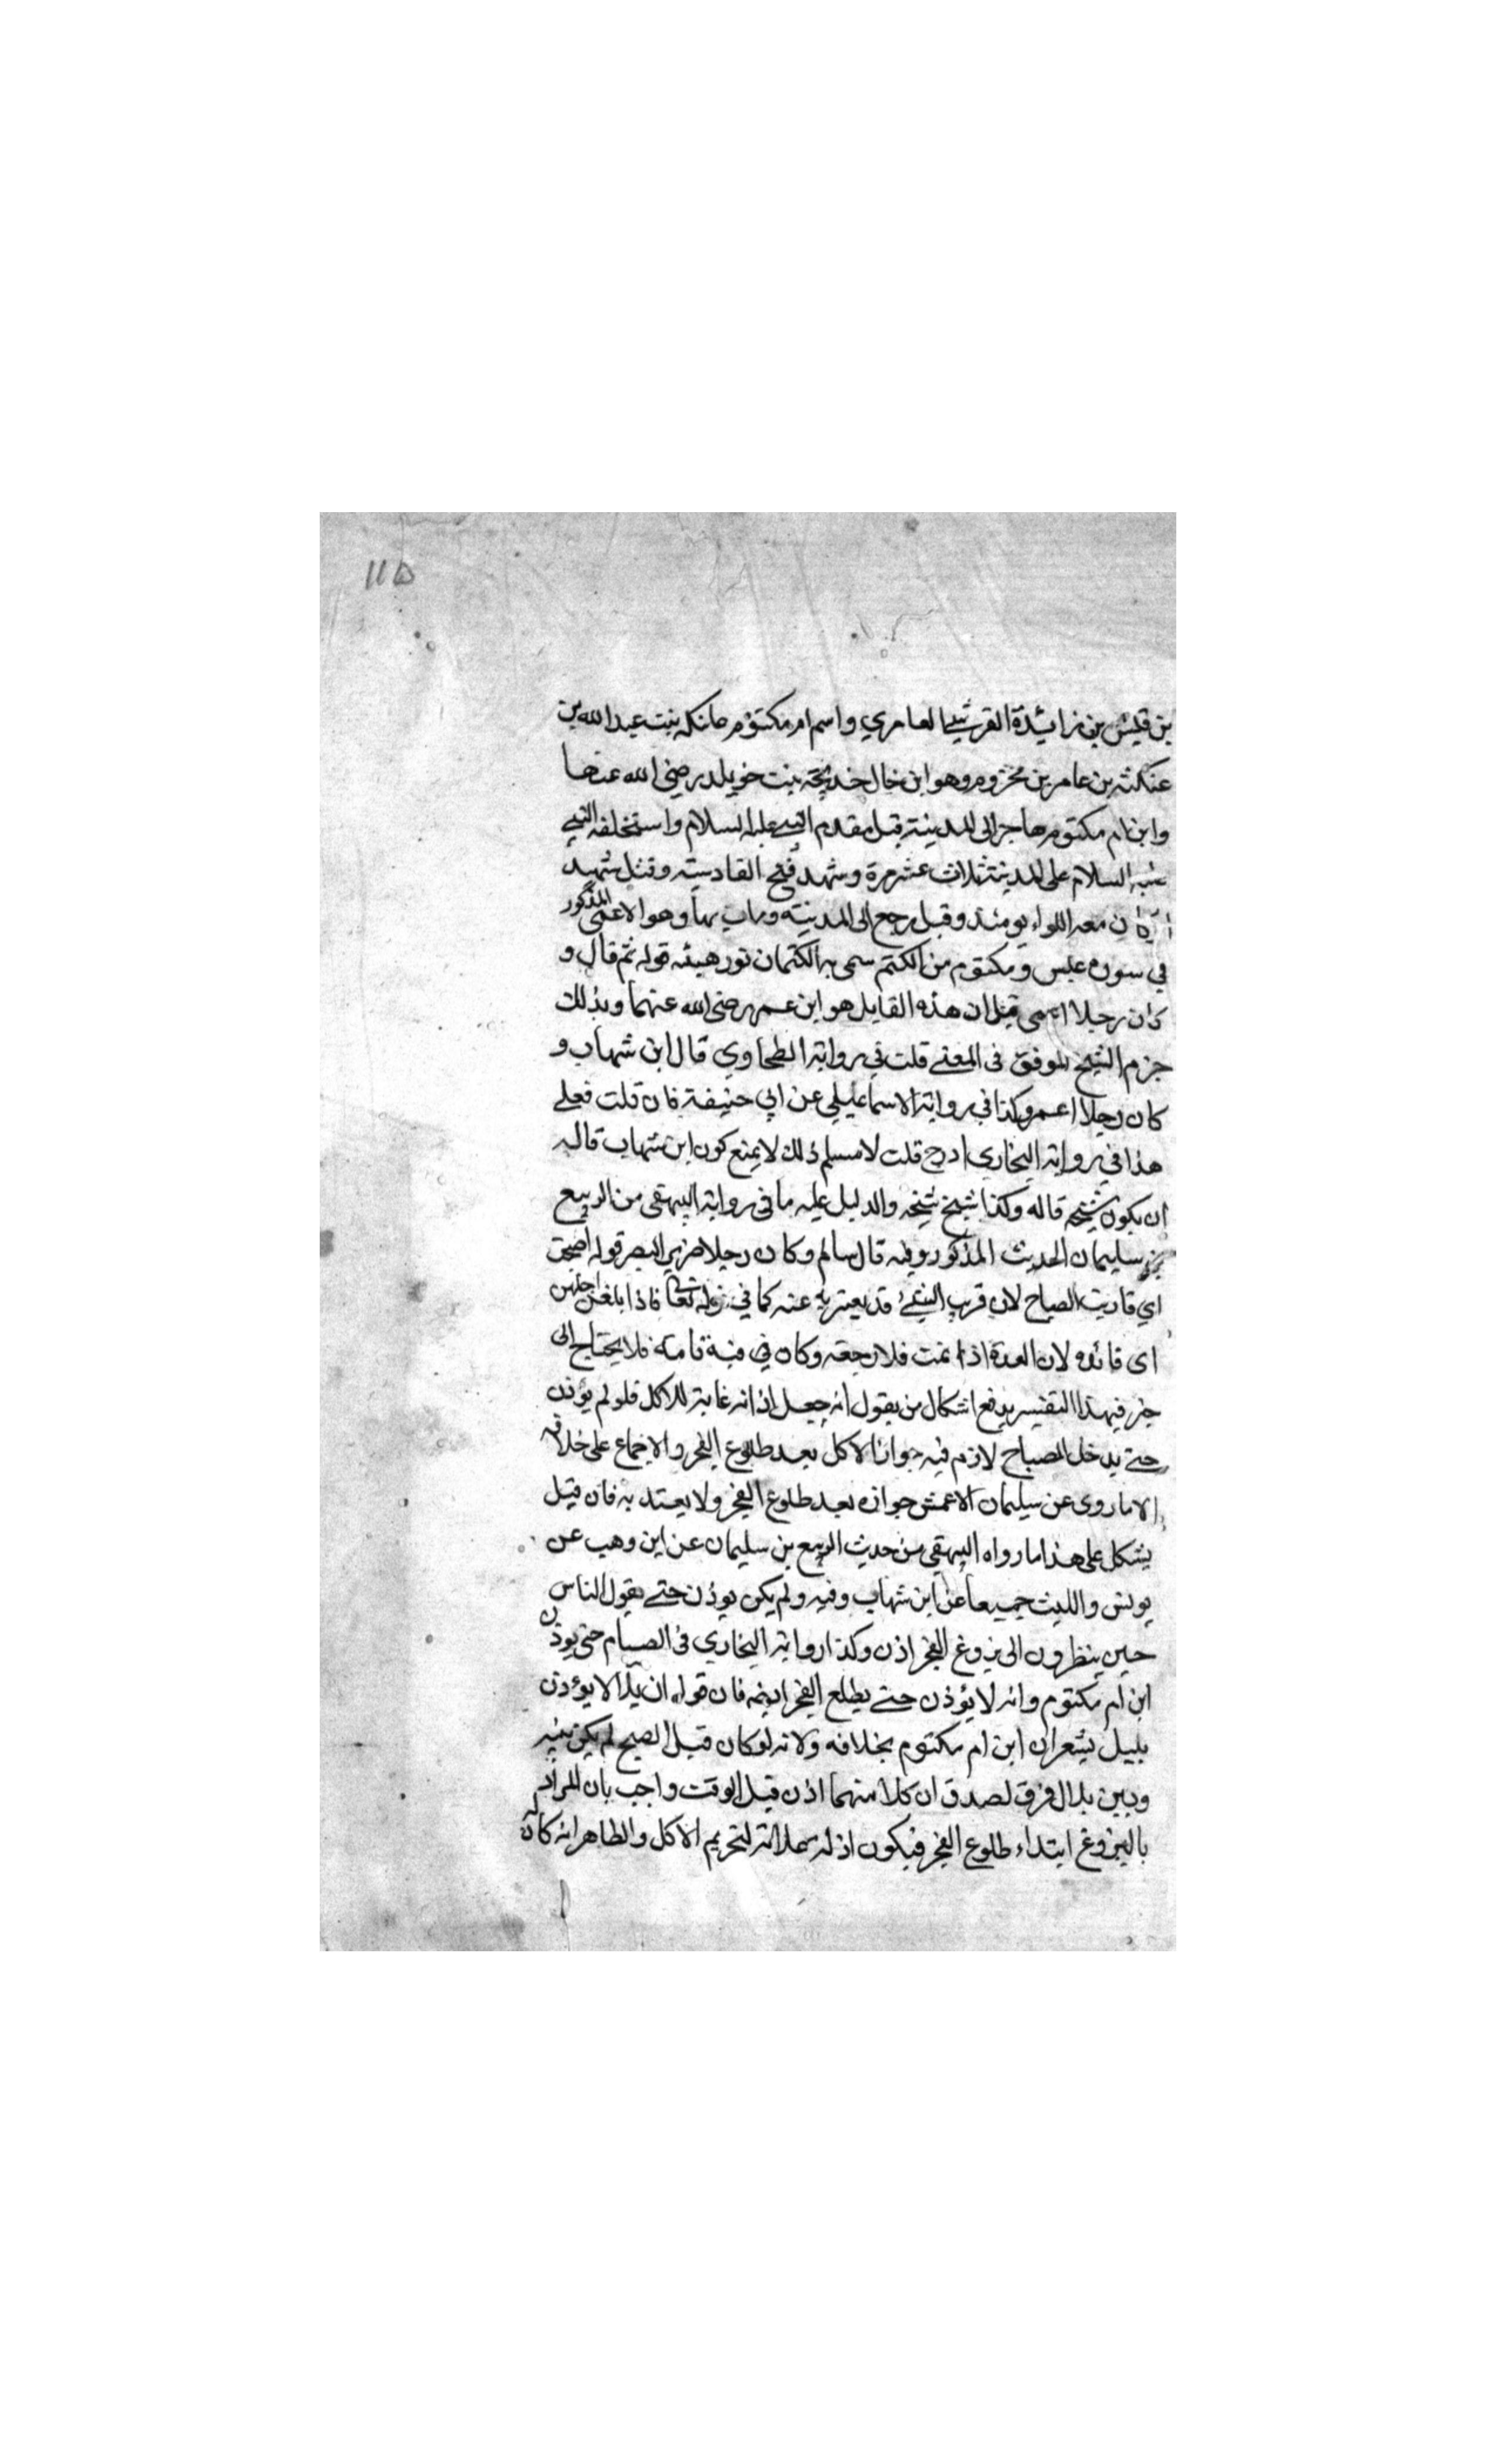 ١١٥
بن قيس بن زائدة القرشي العامري واسم ام مكتوم عاتكه بنت عبد الله بن
عنكثه بن عامر بن مخزوم وهو ابن خال خديجة بنت خويلد رضي الله عنها
وابن ام مكتوم هاجر الى المدينة قبل مقدم النبي عليه السلام واستخلفه النبي
عليه السلام على المدينة ثلاث عشر مرة وشهد فتح القادسية وقتل شهيد
وكان معه اللواء يومئذ وقيل رجع الى المدينة ومات بها وهو الاعمى المذكور
في سورة عبس ومكتوم من الكتم سمى به لكتمان نور عينيه قوله ثم قال و
كان رجلا اعمى قيل ان هذه القايل هو ابن عمر رضى الله عنهما وبذلك
جزم الشيخ الموفق فى المغنے قلت في رواية الطحاوي قال ابن شهاب و
كان رجلا اعمى وكذا في رواية الاسماعيلي عن ابي خنيفة فان قلت فعلے
هذا في رواية البخاري ادرج قلت لا نسلم ذلك لا يمنع كون ابن شهاب قاله
ان يكون شيخه قاله وكذا شيخ شيخه والدليل عليه ما في رواية البيهقى من الربيع
بن سليمان الحديث المذكور وفيه قال سالم وكان رجلا ضرير البصر قوله اصبحت
اي قاربت الصباح لان قرب الشئ قد يعبر به عنه كما في قوله تعا فاذا بلغن اجلهن
اى لان العدة اذا تمت فلا رجعه وكان في فلا يحتاج الى
خبر فبهذا التفسير يدفع اشكال من يقول انه جعل اذانه غاية للاكل فلو لم يؤذن
حتے يدخل الصباح لازم فيه جواز الاكل بعد طلوع الفجر والاجماع على خلافه
الا ما روى عن سليمان الاعمش جوازه بعد طلوع الفجر ولا يعتد به فان قيل
يشكل على هذا ما رواه البيهقي من حديث الربيع بن سليمان عن ابن وهب عن
يونس والليث جميعا عن ابن شهاب وفيه ولم يكن يوذن حتے يقول الناس
حين ينظرون الى بزوغ الفجر اذن وكذا رواية البخاري فى الصيام حتى يوذن
ابن ام مكتوم وانه لا يؤذن حتے يطلع الفجر ايضا فان قوله ان بلالا يوءذن
بليل يشعر ان ابن ام مكتوم بخلافه ولانه لو كان قبل الصبح لم يكن بينه
وبين بلال فرق لصدق ان كلا منهما اذن قبل الوقت واجب بان المراد
بالبزوغ ابتداء طلوع الفجر فيكون اذانه علامة لتحريم الاكل والظاهر انه كان له